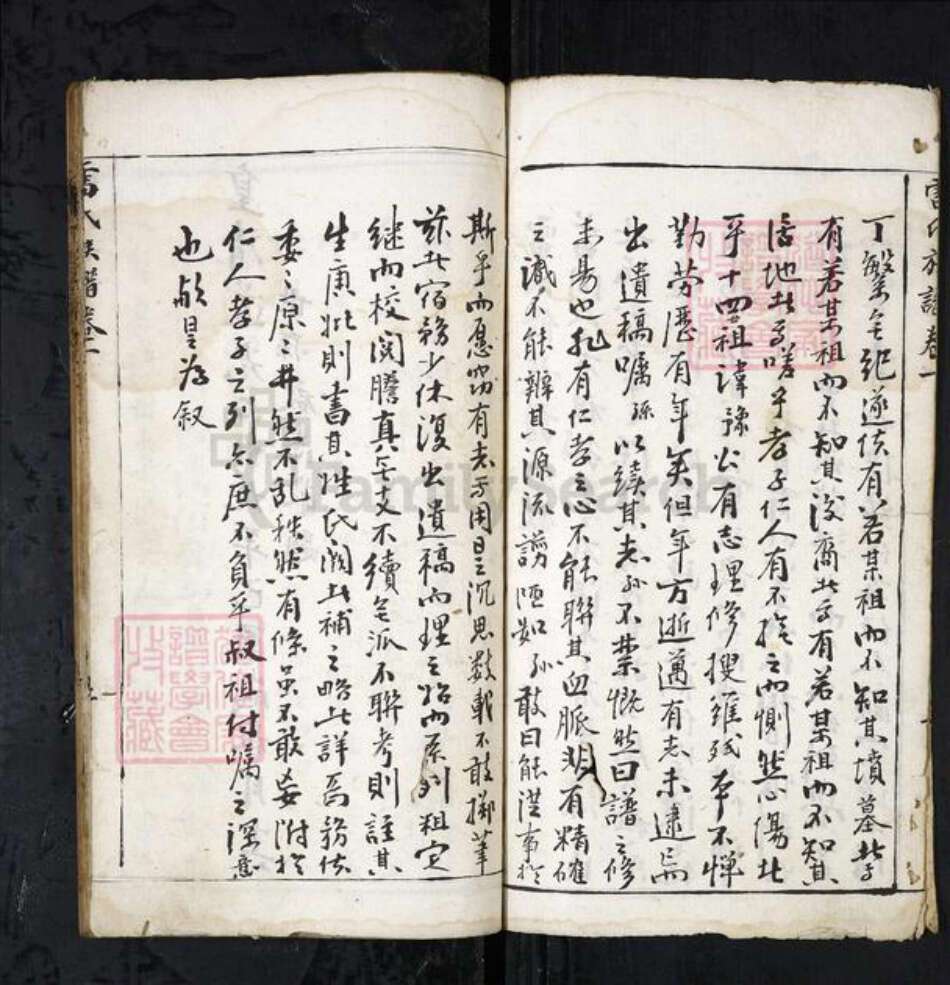 丁繁无纪遂使有若某祖而不知其墳墓者
有若某祖而不知其後裔者有若某祖而不知其
諱地者嗟乎孝子仁人有不接之而惻然心傷者
乎十四祖諱豫公有志理修搜羅殘本不憚
勤劳歷有年矣但年方逝邁有志未逮焉
出遺稿嘱孫以續其志孙不禁慨然曰譜之修
未易也孔有仁孝之心不能聯其血脈非有精確
之識不能辨其源流謭陋如孙敢曰能從事於
斯乎而愿窃有志于用是沉思数載不敢擲筆
茲者宿務少休復出遺稿而理之始而系列粗定
继而校閱謄真无支不續无派不聯考則註其
生庚妣則書其姓氏闕者補之略者詳焉務使
委委原原井然不乱秩然有條虽不敢妄附於
仁人孝子之列亦庶不負乎叔祖付嘱之深意
也歟是为叙
氏族譜卷一
FamilySearch